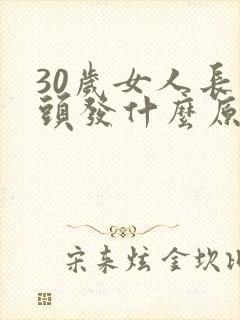 30歲女人長
頭發什麼原
宋來炫金坎比